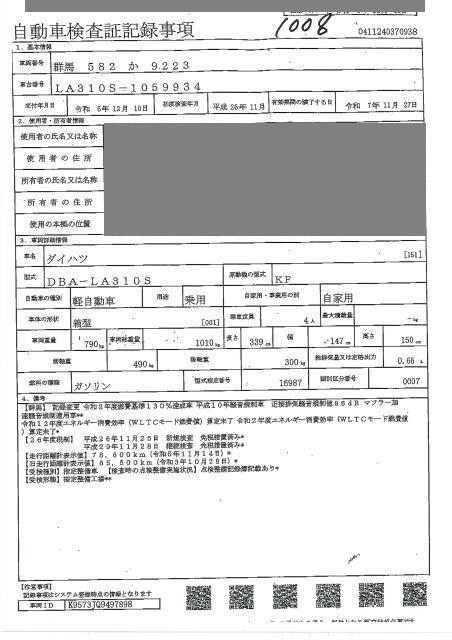 1008
自動車検査証記録事項
0411240370938
1．基本情報
車両番号 群馬 582 か 9223
車台番号 LA310S-1059934
交付年月日 令和 6年12月 10日 初度検査年月 平成 26年 11月 有効期間の満了する日 令和 7年 11月 27日
2．使用者・所有者情報
使用者の氏名又は名称
使用者の住所
所有者の氏名又は名称
所有者の住所
使用の本拠の位置
3．車両詳細情報
車名 ダイハツ [151]
型式 DBA-LA310S 原動機の型式 KF
自動車の種別 軽自動車 用途 乗用 自家用・事業用の別 自家用
車体の形状 箱型 [001] 乗車定員 4人 最大積載量 -kg
車両重量 790kg 車両総重量 1010kg 長さ 339cm 幅 147cm 高さ 150cm
前軸重 490kg 後軸重 300kg 総排気量又は定格出力 0.65 L
燃料の種類 ガソリン 型式指定番号 16987 類別区分番号 0007
4．備考
【群馬】 記録変更 令和2年度燃費基準130％達成車 平成10年軽音規制車 近接排気騒音規制値96dB マフラー加
速騒音規制適用車**
令和12年度エネルギー消費効率（WLTCモード燃費値）算定未了 令和2年度エネルギー消費効率（WLTCモード燃費値
）算定未了*
【26年度税制】 平成26年11月25日 新規検査 免税措置済み*
平成29年11月28日 継続検査 免税措置済み*
【走行距離計表示値】78,600km（令和5年11月14日）*
【旧走行距離計表示値】65,500km（令和3年10月28日）*
【受検種別】指定整備車 【検査時の点検整備実施状況】点検整備記録簿記載あり*
【受検形態】指定整備工場**
【注意事項】
記録事項はシステム登録時点の情報となります
車両ID K9573JQ9497898